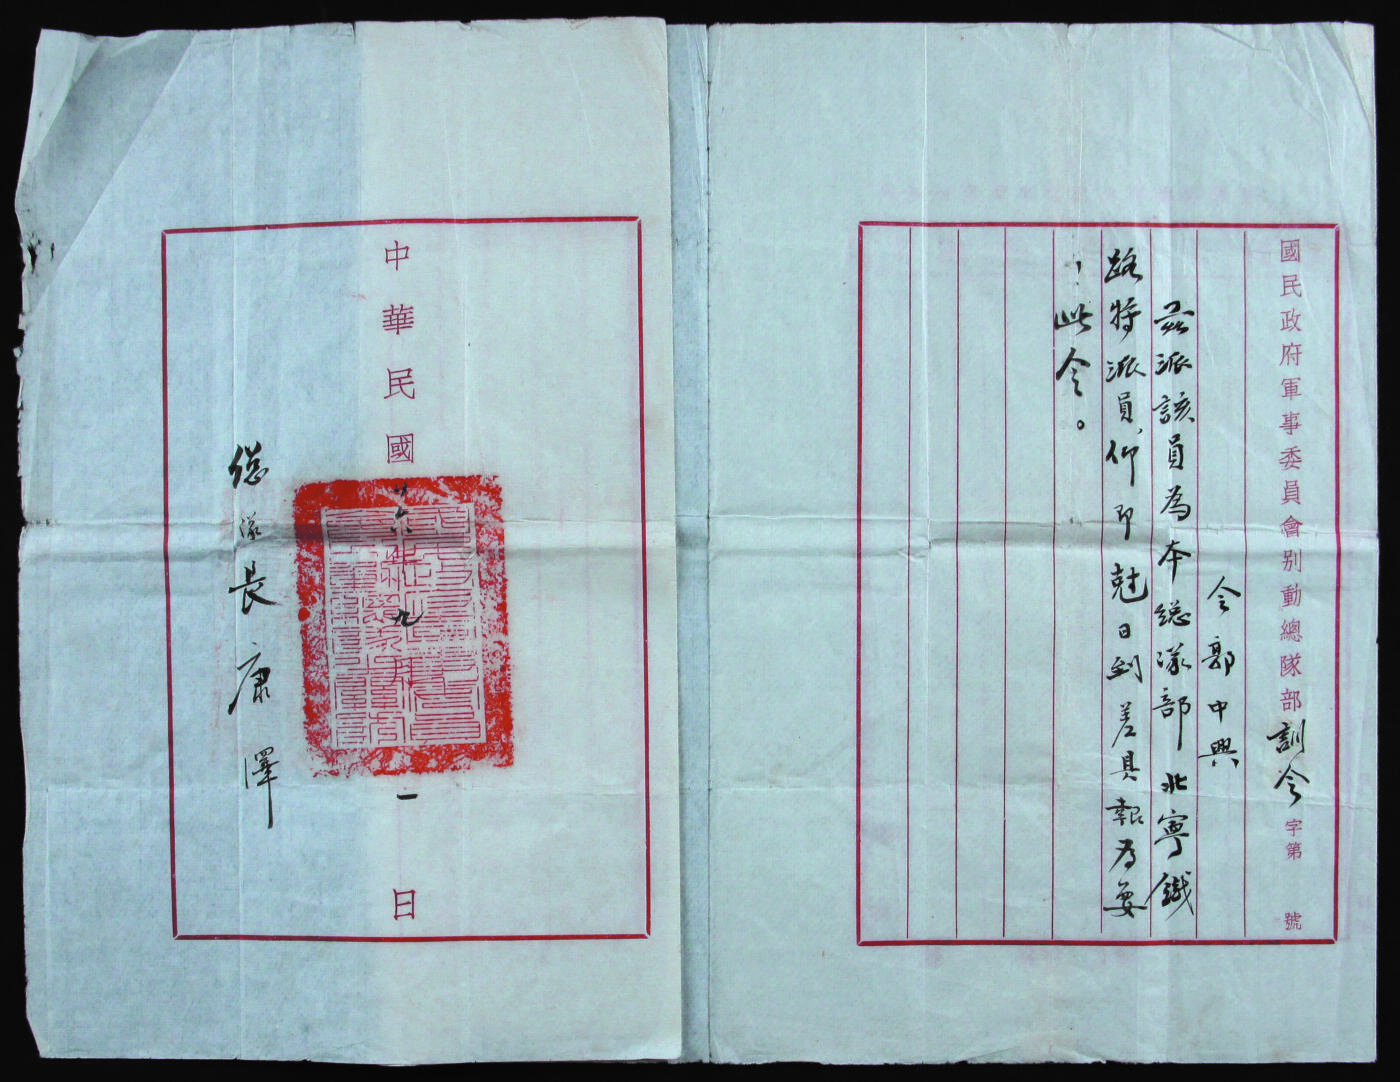 國民政府軍事委員會别動總隊部訓令字第　號
令郭中興
茲派該員為本總隊部北寧鐵
路特派員、仰即尅日到差具報為要
、此令。
中華民國廿六年九月一日
總隊長康澤